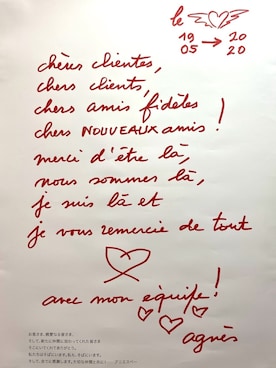 le
19 → 20
05 20
chères clientes,
chers clients,
chers amis fidèles
chers NOUVEAUX amis !
merci d'être là,
nous sommes là,
je suis là et
je vous remercie de tout
avec mon équipe !
agnès